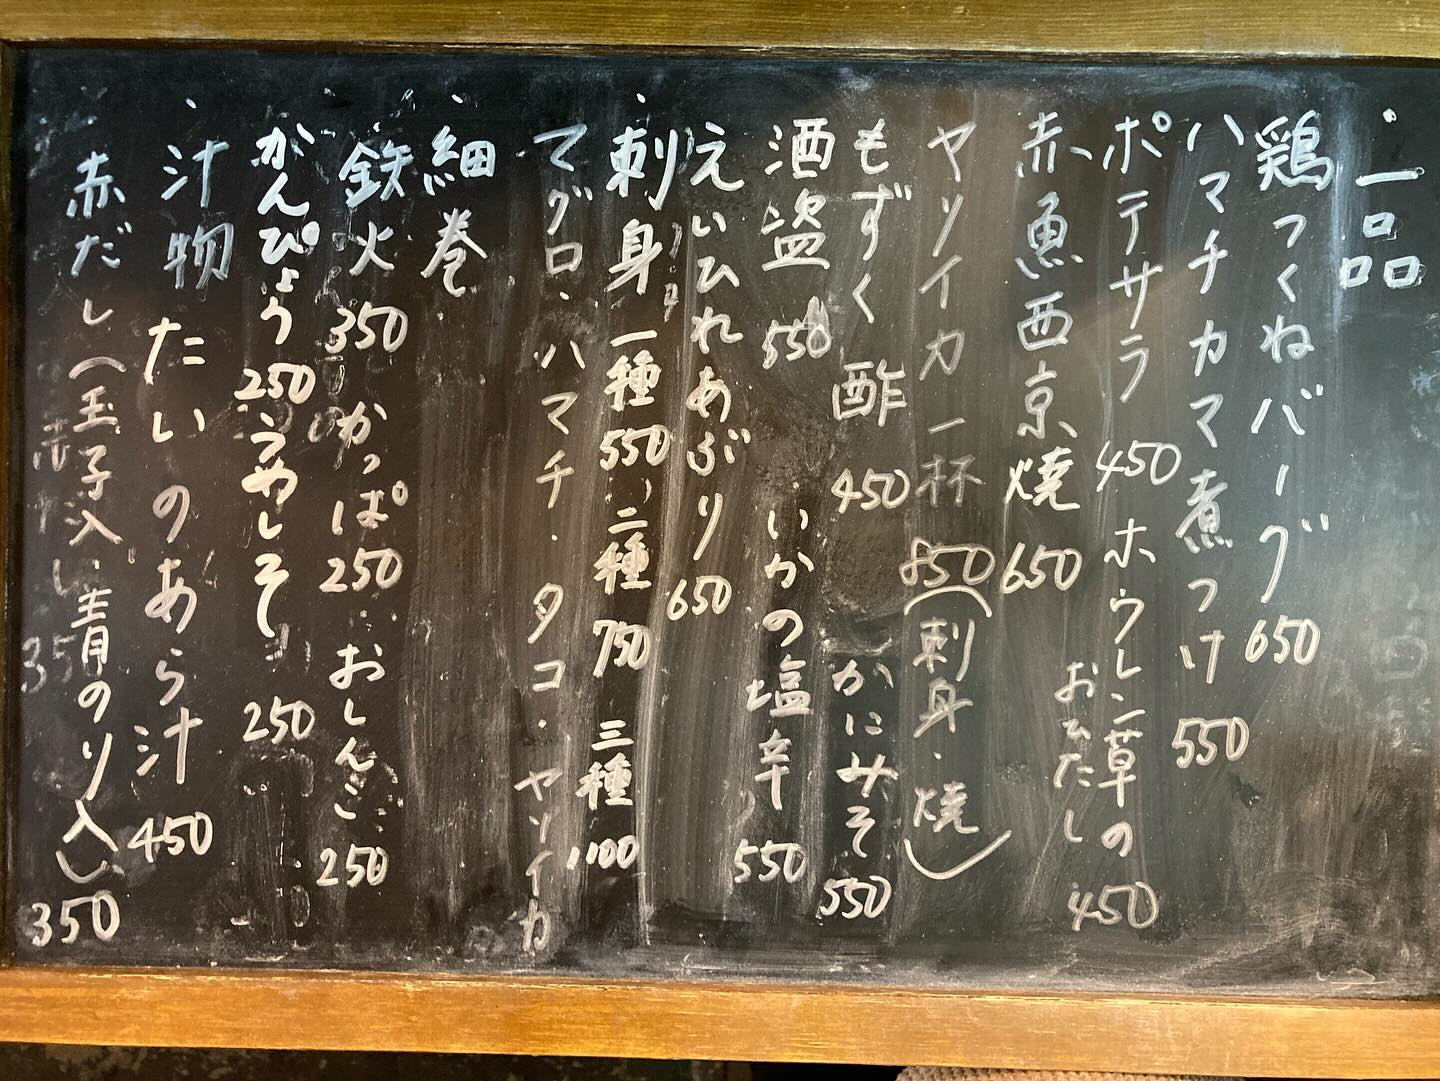 ・一品
鶏つくねバーグ 650
ハマチカマ煮つけ 550
ポテサラ 450 ホウレン草のおひたし 450
赤魚西京焼 650
ヤリイカ一杯 850（刺身・焼）
もずく酢 450 かにみそ 550
酒盗 550 いかの塩辛 550
えいひれあぶり 650
・刺身 一種 550 二種 750 三種 1100
マグロ・ハマチ・タコ・ヤリイカ
・細巻
鉄火 350 かっぱ 250 おしんこ 250
かんぴょう 250 うめしそ 250
・汁物 たいのあら汁 450
赤だし（玉子入り・青のり入り）350